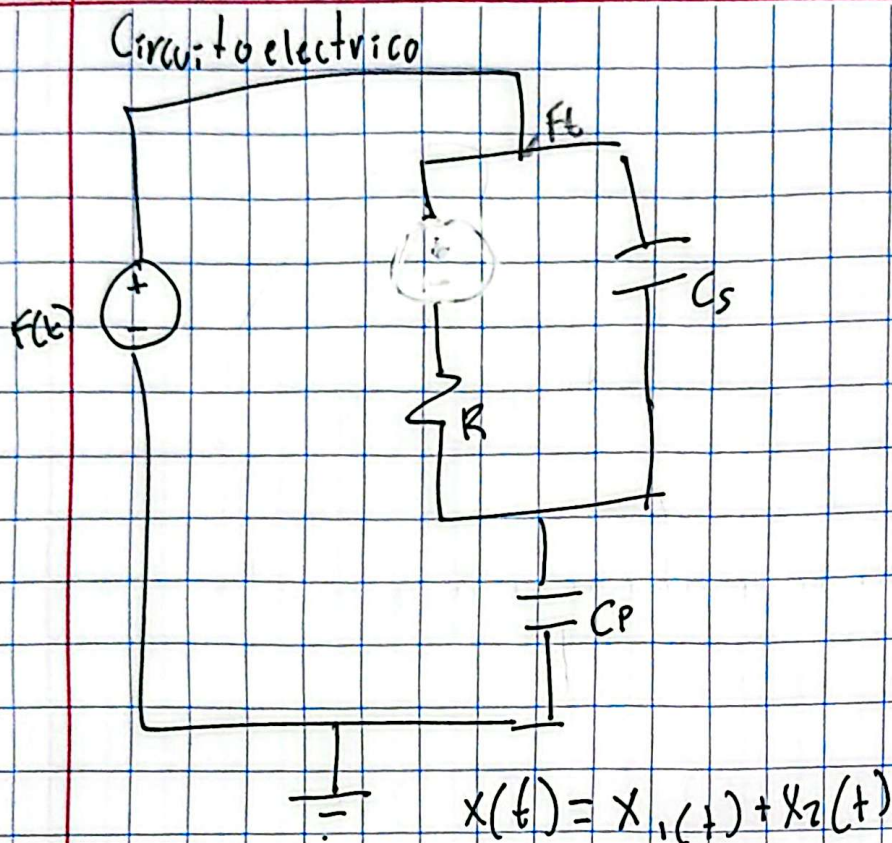 Circuito electrico
Ft
+
F(t)
−
Cs
R
Cp
x(t) = x1(t) + x2(t)